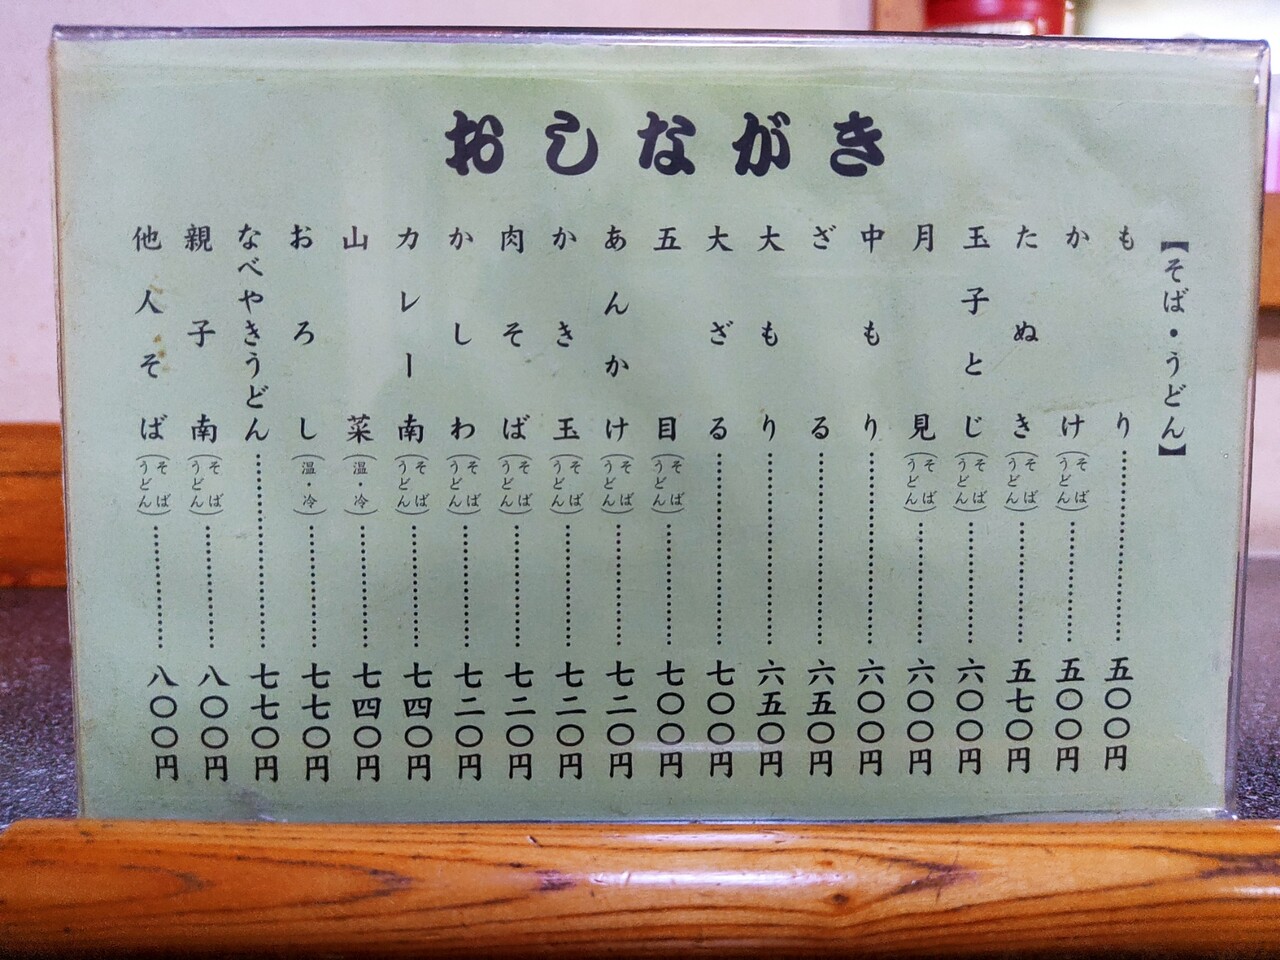 おしながき
【そば・うどん】
もり……五〇〇円
かけ(そば うどん)……五〇〇円
たぬき(そば うどん)……五七〇円
玉子とじ(そば うどん)……六〇〇円
月見(そば うどん)……六〇〇円
中もり……六〇〇円
ざる……六五〇円
大もり……六五〇円
大ざる……七〇〇円
五目(そば うどん)……七〇〇円
あんかけ(そば うどん)……七二〇円
かき玉(そば うどん)……七二〇円
肉そば(そば うどん)……七二〇円
かしわ(そば うどん)……七二〇円
カレー南(そば うどん)……七四〇円
山菜(温・冷)……七四〇円
おろし(温・冷)……七七〇円
なべやきうどん……七七〇円
親子南(そば うどん)……八〇〇円
他人そば(そば うどん)……八〇〇円